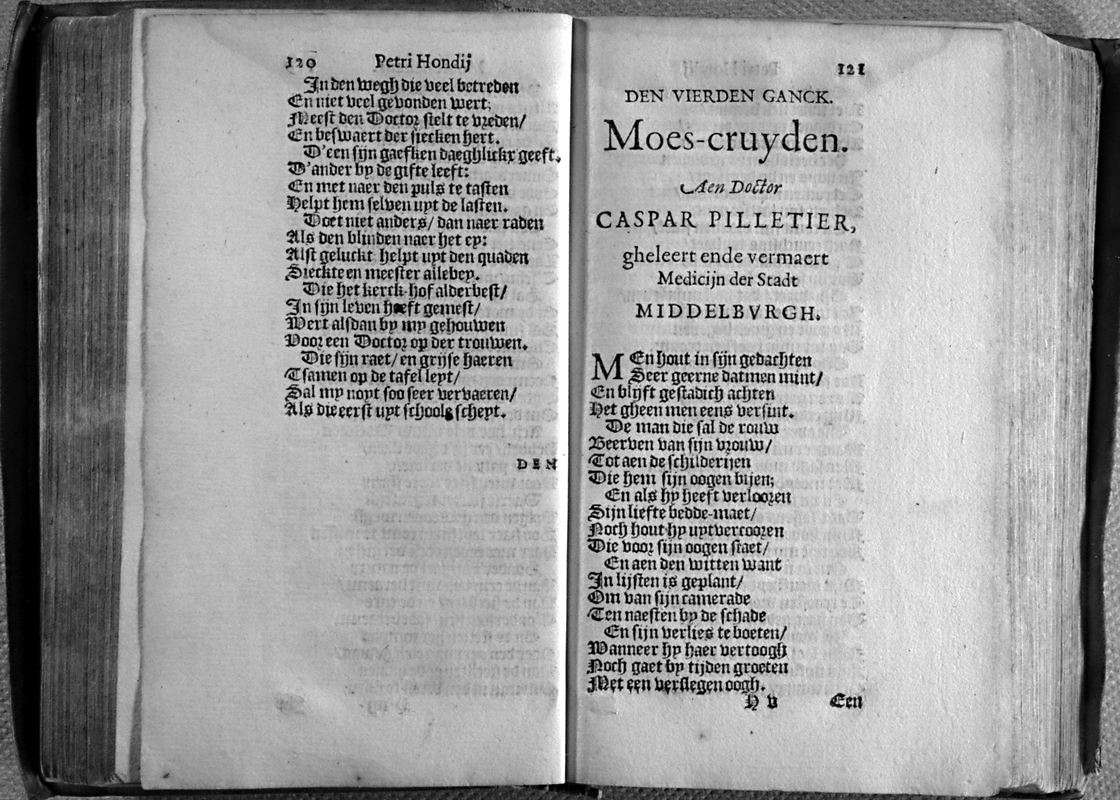 120 Petri Hondij
In den wegh die veel betreden
En niet veel gevonden wert;
Meest den Doctor stelt te vreden/
En beswaert der siecken hert.
D'een sijn gaefken daeghlickx geeft,
D'ander by de gifte leeft:
En met naer den puls te tasten
Helpt hem selven uyt de lasten.
Doet niet anders/ dan naer raden
Als den blinden naer het ey:
Alst geluckt helpt uyt den quaden
Sieckte en meester allebey.
Die het kerck-hof alderbest/
In sijn leven heeft gemest/
Wert alsdan by my gehouwen
Voor een Doctor op der trouwen.
Die sijn raet/ en grijse haeren
Tsamen op de tafel leyt/
Sal my noyt soo seer vervaeren/
Als die eerst uyt schools scheyt.
DEN
121
DEN VIERDEN GANCK.
Moes-cruyden.
Aen Doctor
CASPAR PILLETIER,
gheleert ende vermaert
Medicijn der Stadt
MIDDELBVRGH.
MEn hout in sijn gedachten
Seer geerne datmen mint/
En blijft gestadich achten
Het gheen men eens versint.
De man die sal de rouw
Beerven van sijn vrouw/
Tot aen de schilderijen
Die hem sijn oogen bijen;
En als hy heeft verlooren
Sijn liefte bedde-maet/
Noch hout hy uytvercooren
Die voor sijn oogen staet/
En aen den witten want
In lijsten is geplant/
Om van sijn camerade
Ten naesten by de schade
En sijn verlies te boeten/
Wanneer hy haer vertoogh
Noch gaet by tijden groeten
Met een verslegen oogh.
H v Een